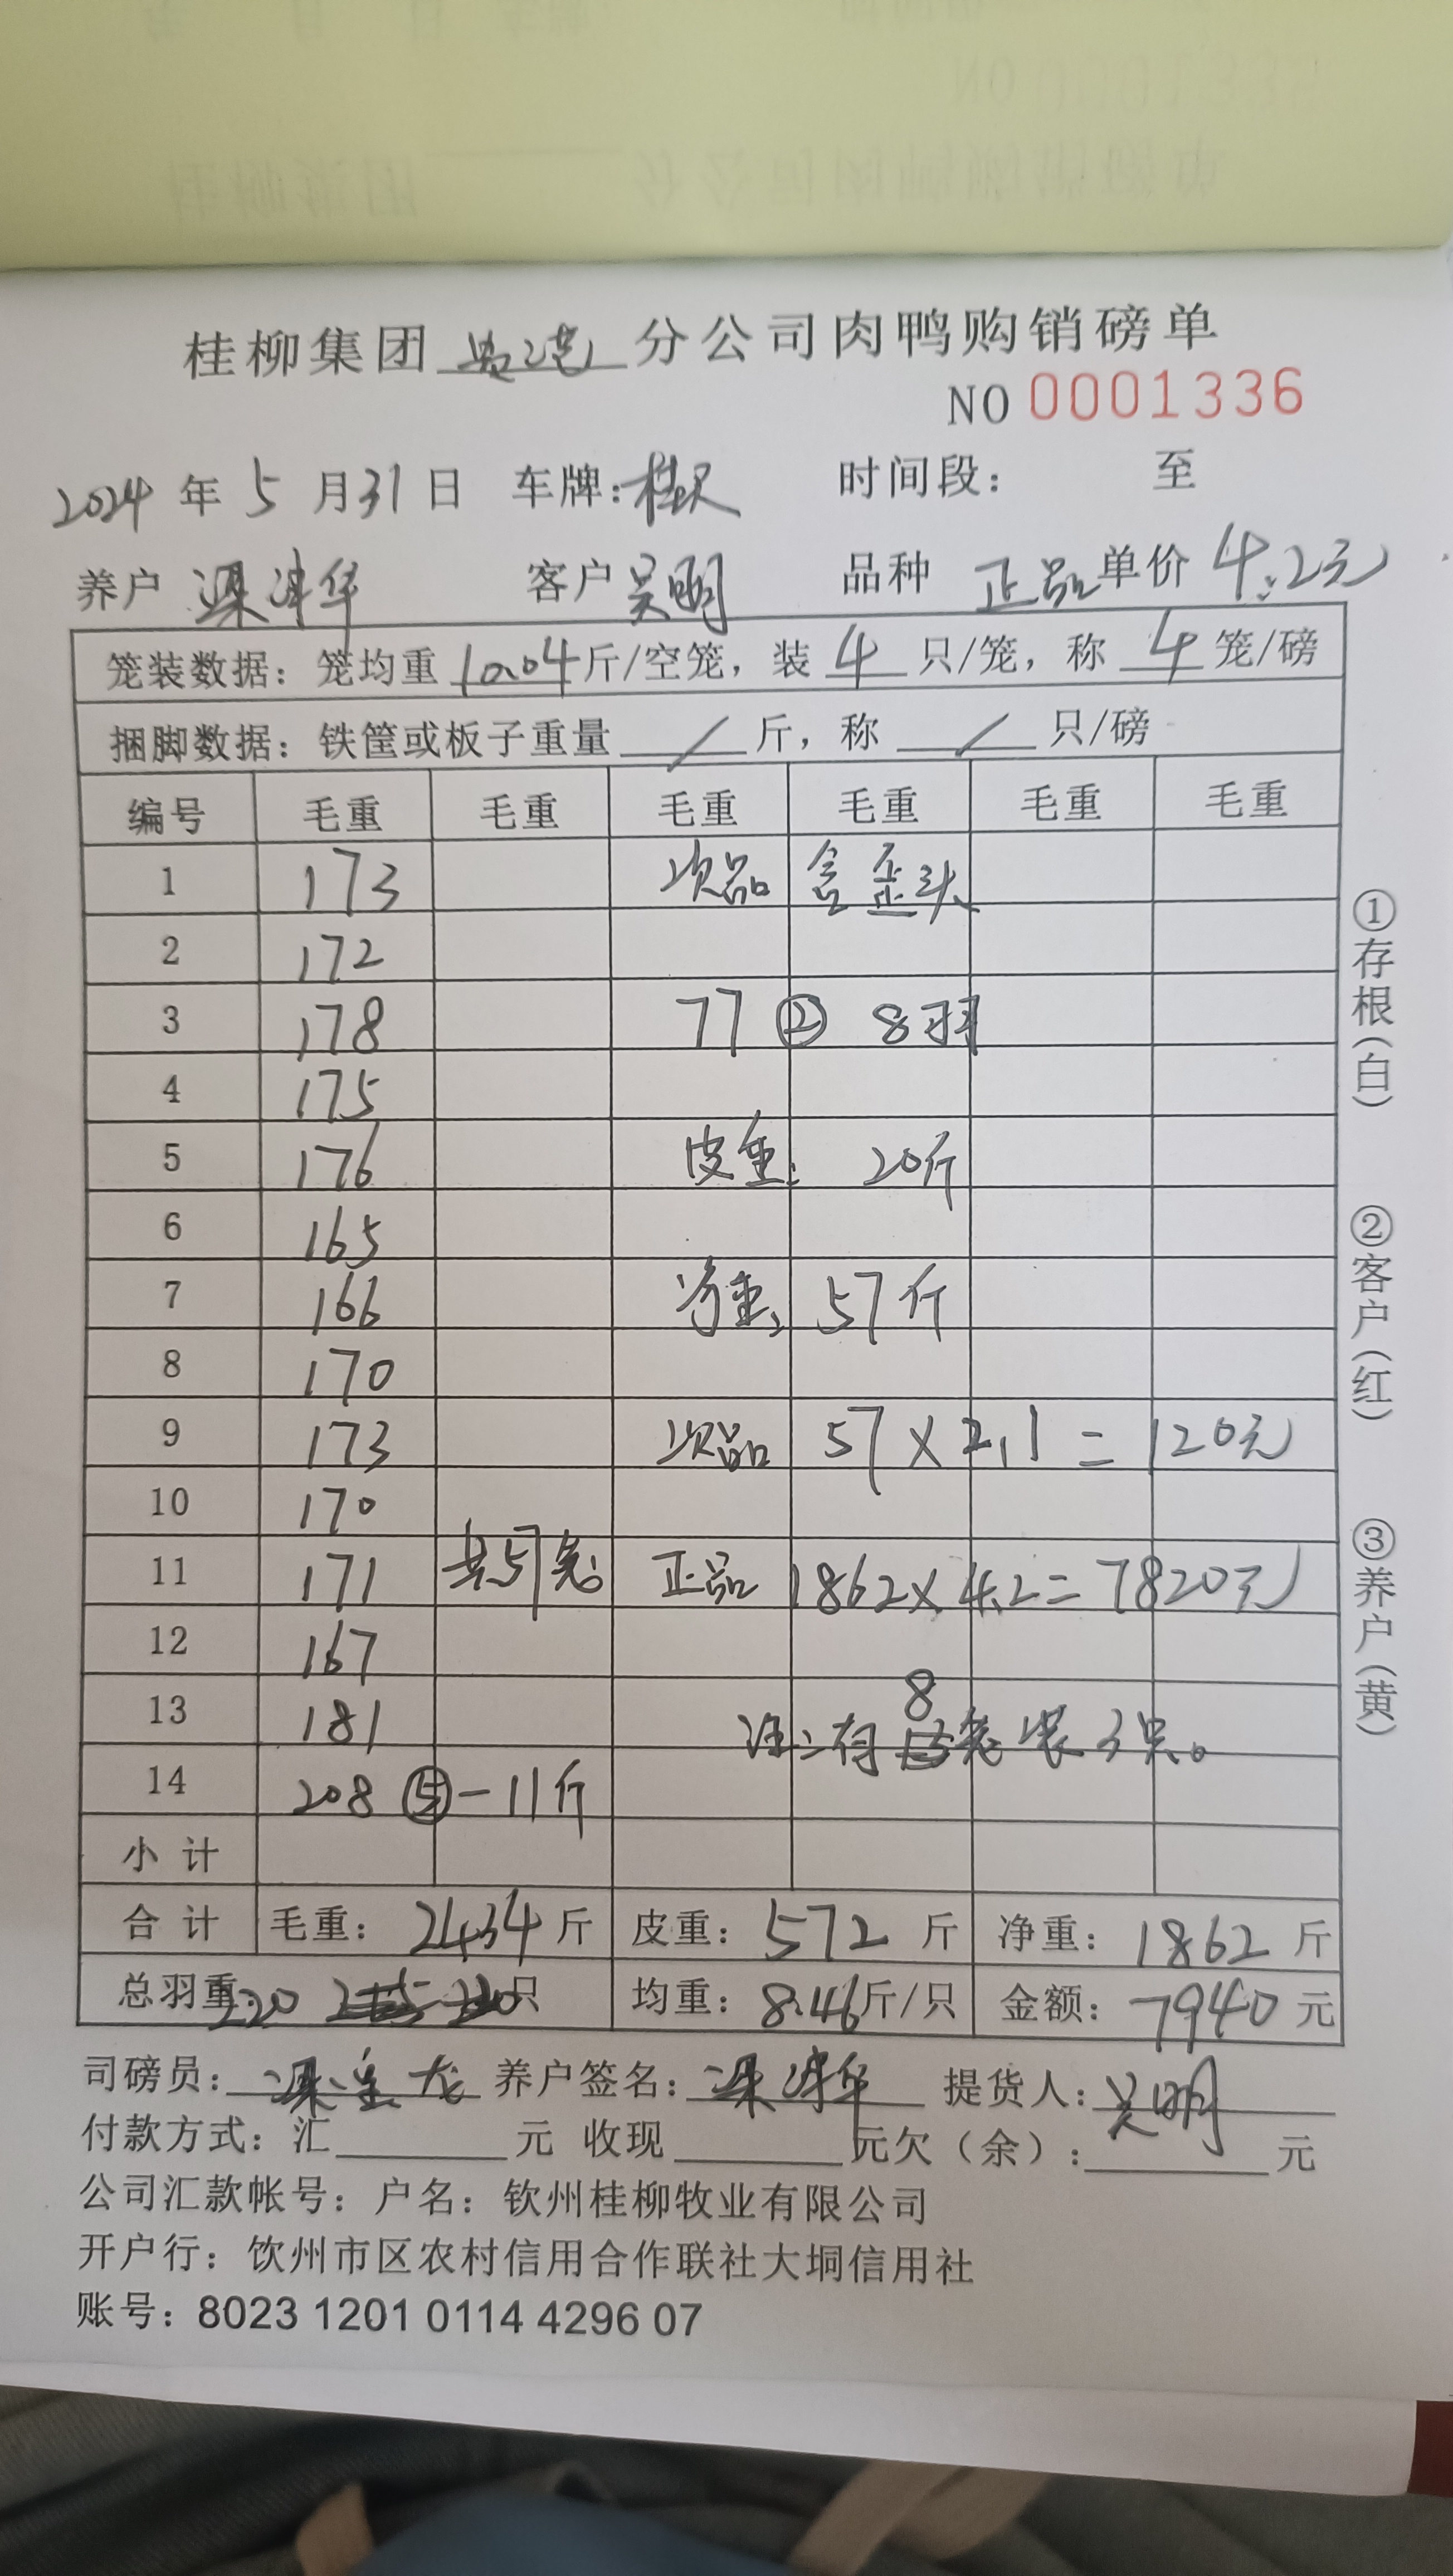 桂柳集团 分公司肉鸭购销磅单
NO 0001336
2024 年 5 月 31 日 车牌: 时间段: 至
养户 梁津华 客户 吴明 品种 正品 单价 4.2元
笼装数据: 笼均重 10.04 斤/空笼, 装 4 只/笼, 称 4 笼/磅
捆脚数据: 铁筐或板子重量 / 斤, 称 / 只/磅
编号 毛重 毛重 毛重 毛重 毛重 毛重
1 173 次品 含歪头
2 172
3 178 77 ② 8羽
4 175
5 176 皮重: 20斤
6 165
7 166 净重: 57斤
8 170
9 173 次品 57×2.1=120元
10 170
11 171 共57笼 正品 1862×4.2=7820元
12 167
13 181
注:有 8 笼装3只。
14 208 ⑤ -11斤
小 计
合 计 毛重: 2434 斤 皮重: 572 斤 净重: 1862 斤
总羽重: 220 只 均重: 8.46 斤/只 金额: 7940 元
司磅员: 养户签名: 梁津华 提货人: 吴明
付款方式: 汇 元 收现 元欠(余): 元
公司汇款帐号: 户名: 钦州桂柳牧业有限公司
开户行: 钦州市区农村信用合作联社大垌信用社
账号: 8023 1201 0114 4296 07
①存根(白)
②客户(红)
③养户(黄)